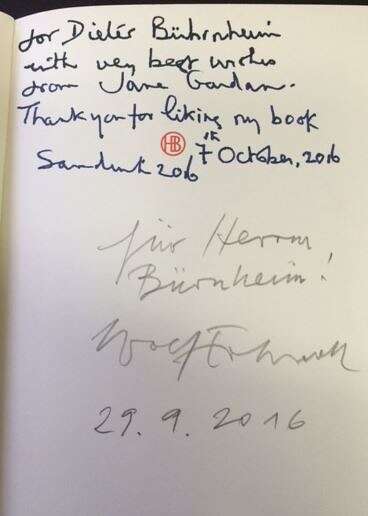 for Dieter Bührnheim
with very best wishes
from Jane Gardam.
Thank you for liking my book
HB 7th October, 2016
Sandwich 2016
für Herrn
Bürnheim!
Wolf
29. 9. 2016